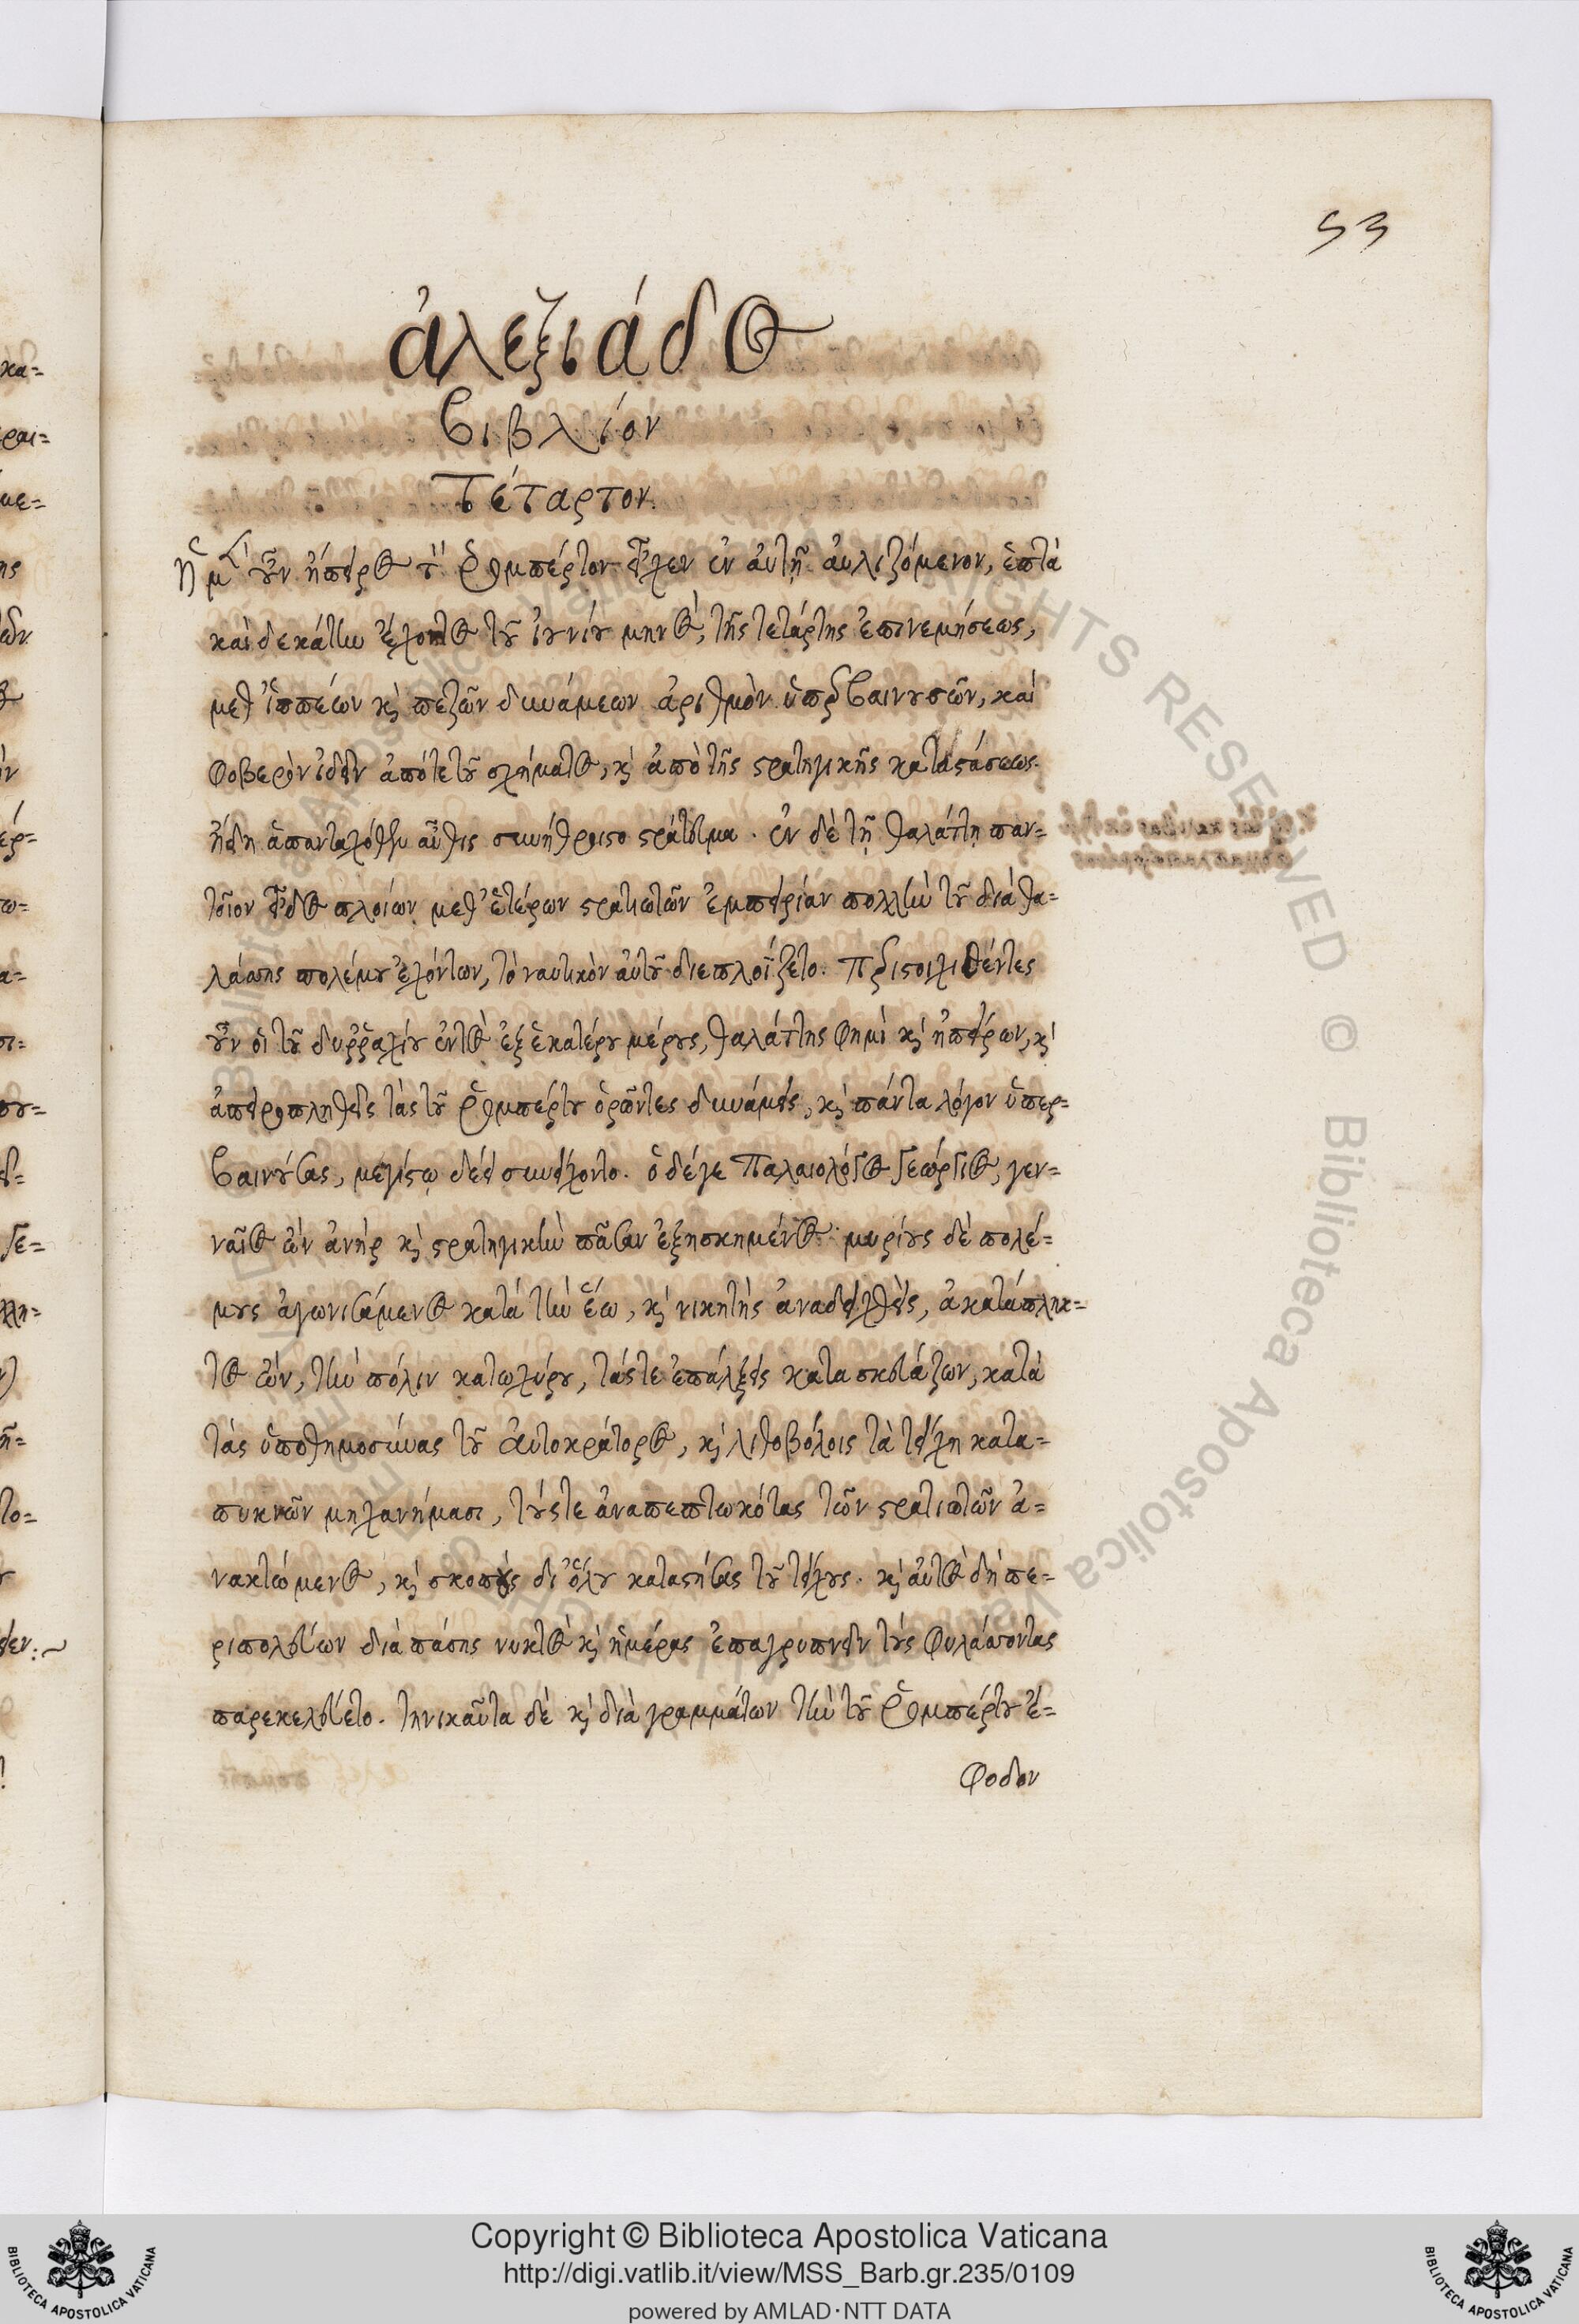 53
ἀλεξιάδος
βιβλίον
Τέταρτον.
Ἡ μὲν οὖν ἤπειρος τὸν Ῥομπέρτον εἶχεν ἐν αὐτῇ αὐλιζόμενον, ἑπτὰ
καὶ δεκάτην ἔχοντος τοῦ ἰουνίου μηνὸς, τῆς τετάρτης ἐπινεμήσεως,
μεθ' ἱππέων καὶ πεζῶν δυνάμεων ἀριθμὸν ὑπερβαινουσῶν, καὶ
φοβερὸν ἰδεῖν ἀπό τε τοῦ σχήματος, καὶ ἀπὸ τῆς στρατηγικῆς καταστάσεως.
ἤδη ἁπανταχόθεν αὖθις συνήθροιστο στράτευμα. ἐν δὲ τῇ θαλάττῃ παν=
τοῖον εἶδος πλοίων μεθ' ἑτέρων στρατιωτῶν ἐμπειρίαν πολλὴν τοῦ διὰ θα=
λάσσης πολέμου ἐχόντων, τὸ ναυτικὸν αὐτοῦ διεπλοΐζετο. περιστοιχισθέντες
οὖν οἱ τοῦ δυῤῥαχίου ἐντὸς ἐξ ἑκατέρου μέρους, θαλάττης φημὶ καὶ ἠπείρων, καὶ
ἀπειροπληθεῖς τὰς τοῦ Ῥομπέρτου ὁρῶντες δυνάμεις, καὶ πάντα λόγον ὑπερ=
βαινούσας, μεγίστῳ δέει συνείχοντο. ὁ δέ γε Παλαιολόγος Γεώργιος, γεν=
ναῖος ὢν ἀνήρ καὶ στρατηγικὴν πᾶσαν ἐξησκημένος· μυρίους δὲ πολέ=
μους ἀγωνισάμενος κατὰ τὴν ἕω, καὶ νικητὴς ἀναδειχθεὶς, ἀκατάπληκ=
τος ὢν, τὴν πόλιν κατωχύρου, τάς τε ἐπάλξεις κατασκευάζων, κατὰ
τὰς ὑποθημοσύνας τοῦ Αὐτοκράτορος, καὶ λιθοβόλοις τὰ τείχη κατα=
πυκνῶν μηχανήμασι, τούς τε ἀναπεπτωκότας τῶν στρατιωτῶν ἀ=
νακτώμενος, καὶ σκοποὺς δι' ὅλου καταστήσας τοῦ τείχους. καὶ αὐτὸς δὴ πε=
ριπολεύων διὰ πάσης νυκτὸς καὶ ἡμέρας ἐπαγρυπνεῖν τοὺς φυλάσσοντας
παρεκελεύετο. τηνικαῦτα δὲ καὶ διὰ γραμμάτων τὴν τοῦ Ῥομπέρτου ἔ=
φοδον
Copyright © Biblioteca Apostolica Vaticana
http://digi.vatlib.it/view/MSS_Barb.gr.235/0109
powered by AMLAD·NTT DATA
BIBLIOTECA APOSTOLICA VATICANA
BIBLIOTECA APOSTOLICA VATICANA